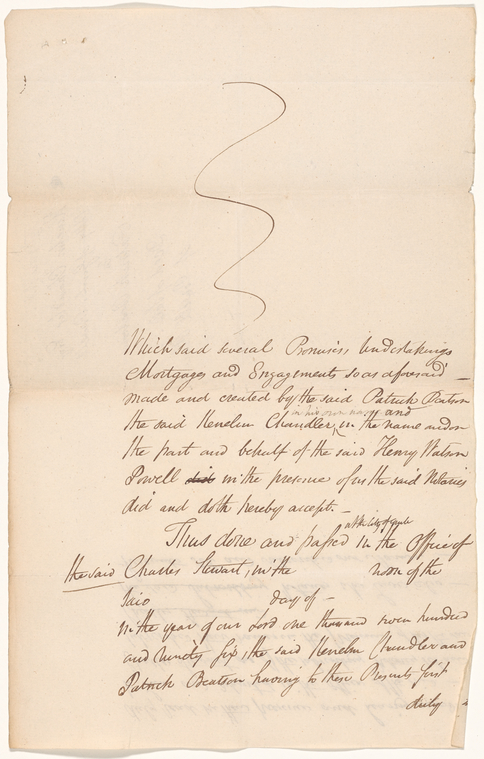 Which said several Promises, Undertakings
Mortgages and Engagements so as aforesaid —
made and created by the said Patrick Beatson
in his own name and
the said Kenelm Chandler, in the name and on
the part and behalf of the said Henry Watson
Powell did in the presence of us the said Notaries
did and doth hereby accept. —
at the City of Quebec
Thus done and passed in the Office of
the said Charles Stewart, in the noon of the
said day of —
in the year of our Lord one thousand seven hundred
and ninety six, the said Kenelm Chandler and
Patrick Beatson having to these Presents first
duly